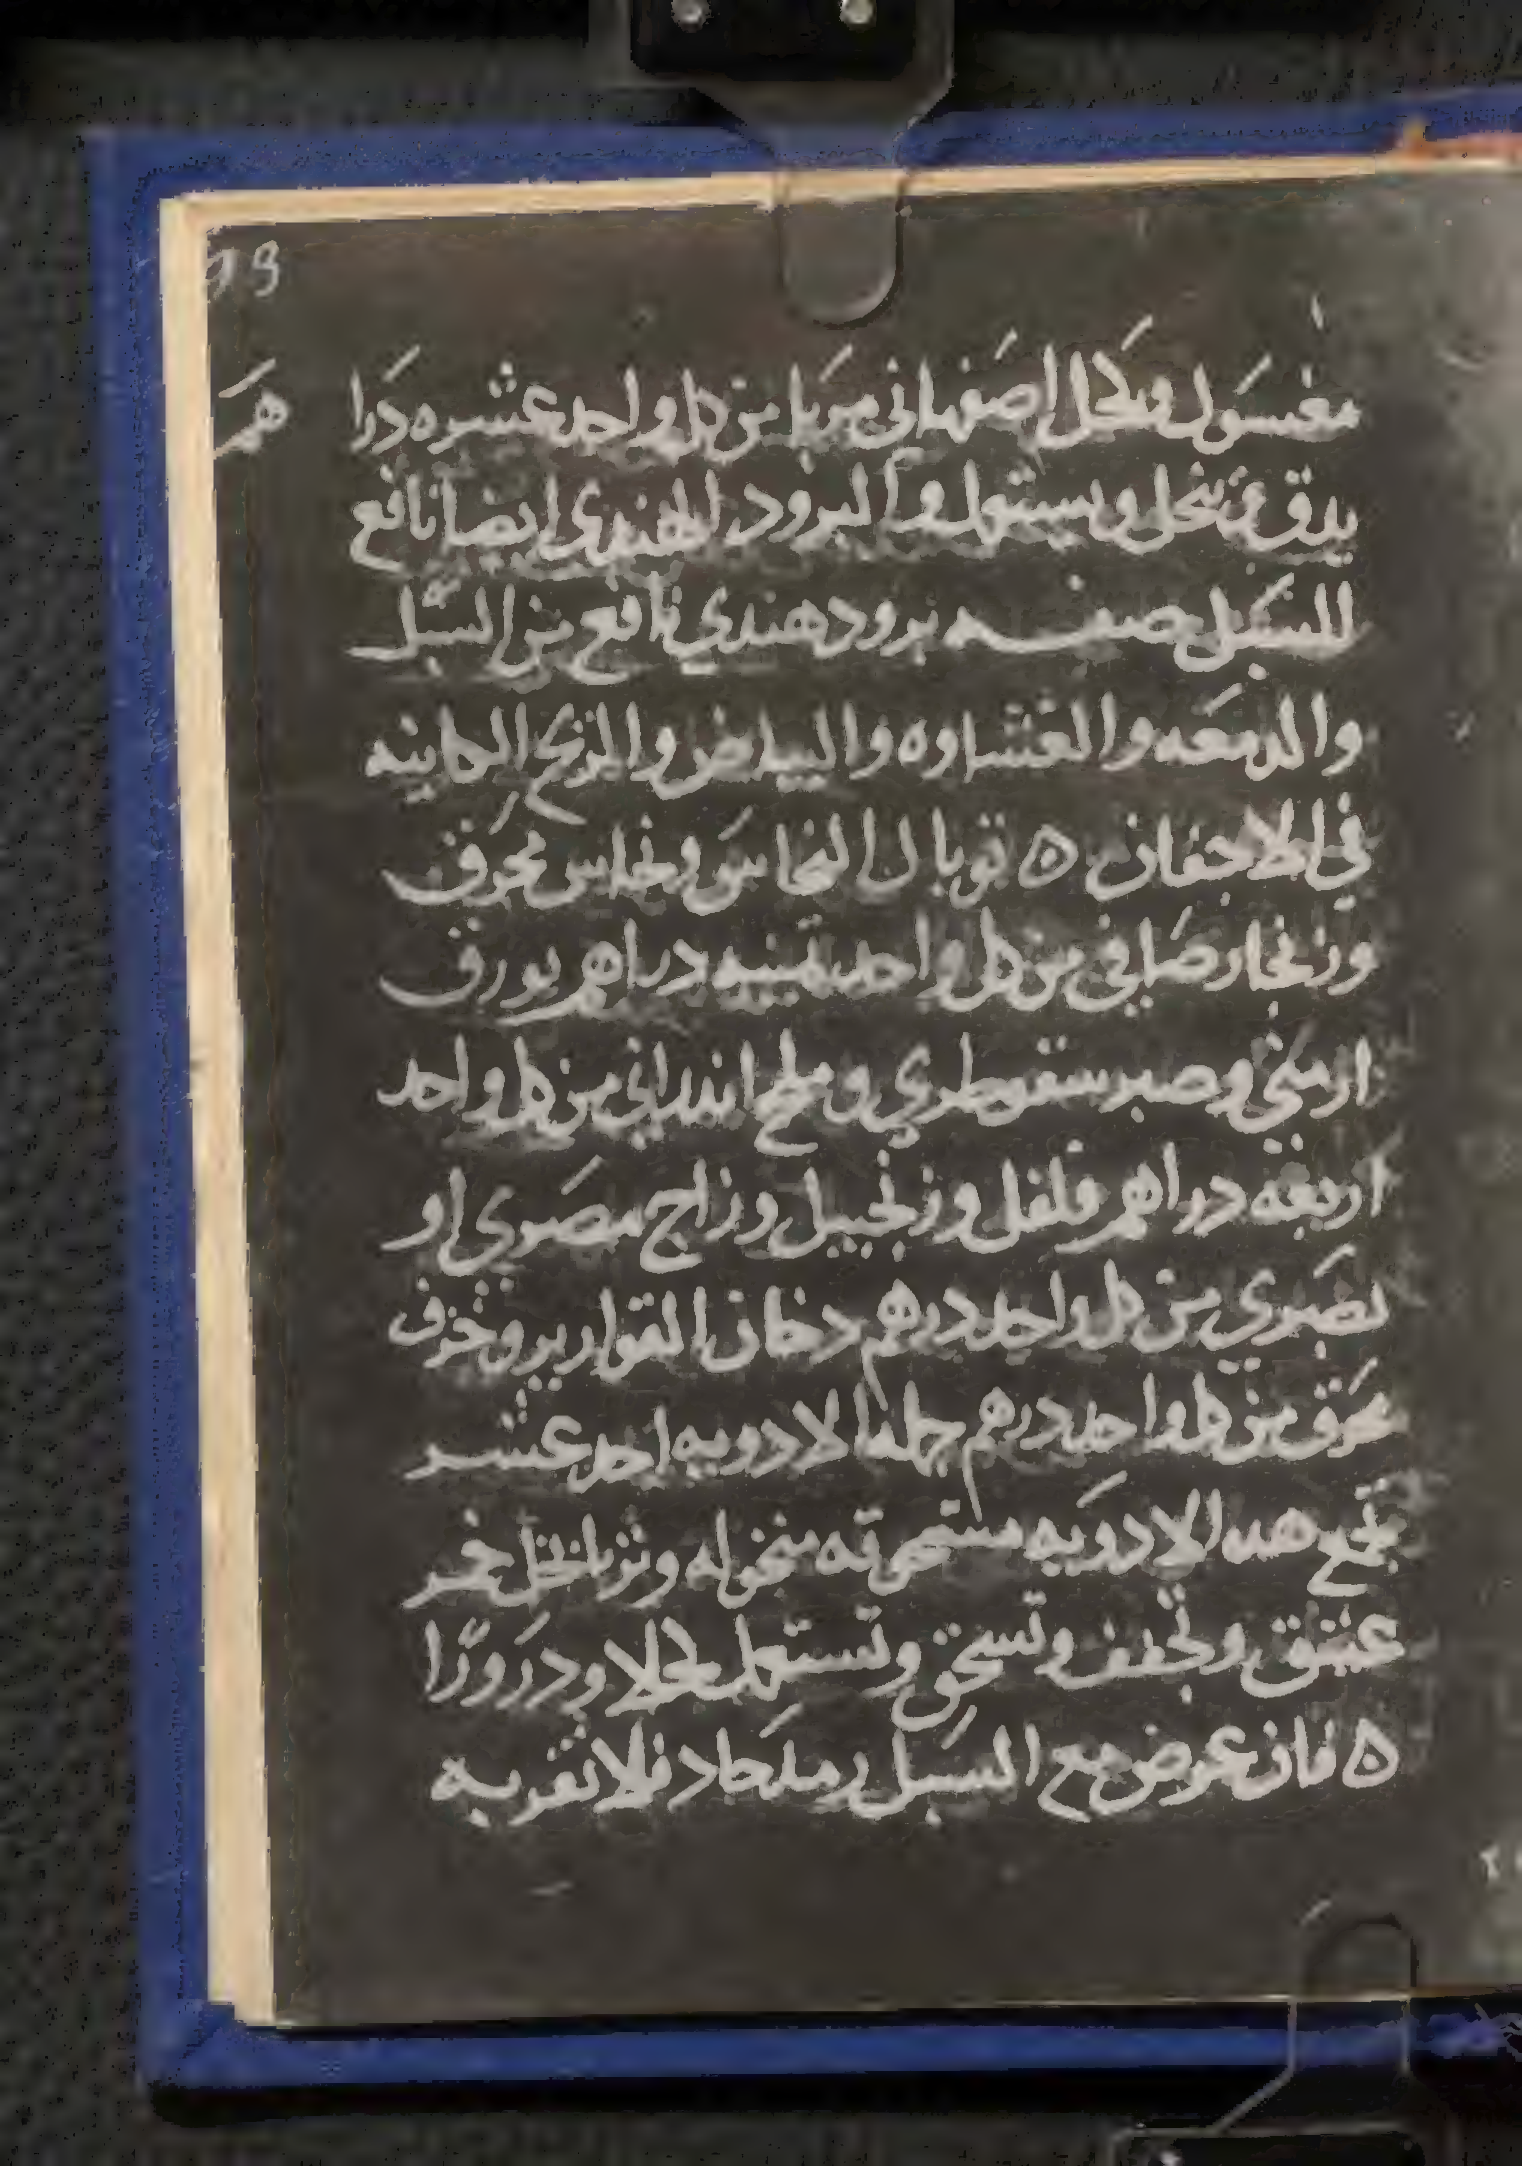 99
مغسول وكحل اصفهاني مربا من كل واحد عشره درا هم
يدق وينخل ويستعمل والبرود الهندي ايضا نافع
للسبل صفه برود هندي نافع من السبل
والدمعه والغشاوه والبياض والريح الكاينه
في الاجفان ه توبال النحاس ونحاس محرق
وزنجار صافي من كل واحد ثمنيه دراهم بورق
ارمني وصبر سقوطري وملح اندراني من كل واحد
اربعه دراهم فلفل وزنجبيل وزاج مصري او
بصري من كل واحد درهم دخان القوارير وخزف
محرق من كل واحد درهم جمله الادويه احد عشر
تجمع هده الادويه مسحوقه منخوله وتربا بخل خمر
عتيق وتجفف وتسحق وتستعمل كحلا ودرورًا
ه فان عرض مع السبل رمد حاد فلا تقربه